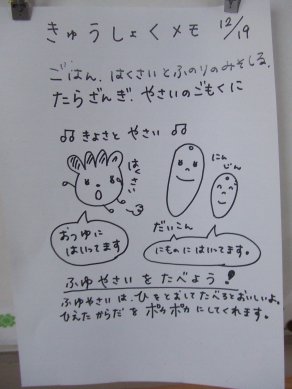 きゅうしょくメモ 12/19
ごはん、はくさいとふのりのみそしる、
たらざんぎ、やさいのごもくに
♫ きよさと やさい ♫
はくさい
にんじん
おつゆに
はいってます
だいこん
にものに はいってます。
ふゆやさい を たべよう!
ふゆやさいは、ひをとおしてたべるとおいしいよ。
ひえたからだを ポカポカ にしてくれます。